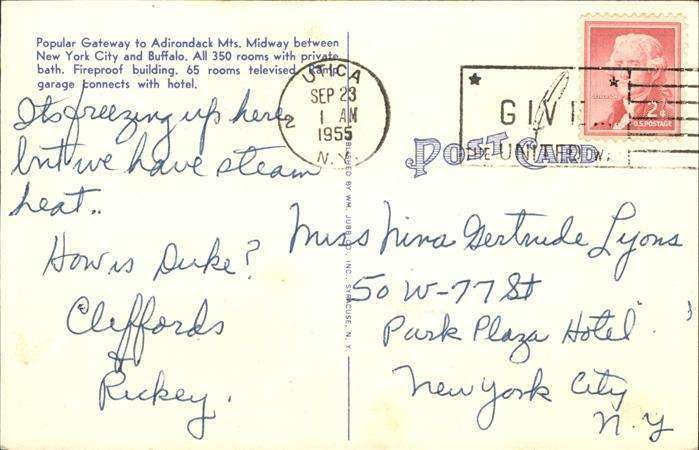 Popular Gateway to Adirondack Mts. Midway between
New York City and Buffalo. All 350 rooms with private
bath. Fireproof building. 65 rooms televised. Ramp
garage connects with hotel.
Its freezing up here
but we have steam
heat..
How is Duke?
Cliffords
&
Rickey.
UTICA
SEP 23
1 AM
1955
N.Y.
2
PUBLISHED BY WM. JUBB CO., INC., SYRACUSE, N. Y.
GIVE
THE UNITED WAY
2¢
U.S. POSTAGE
POST CARD
Miss Nina Gertrude Lyons
50 W-77 St
Park Plaza Hotel
New York City
N.Y